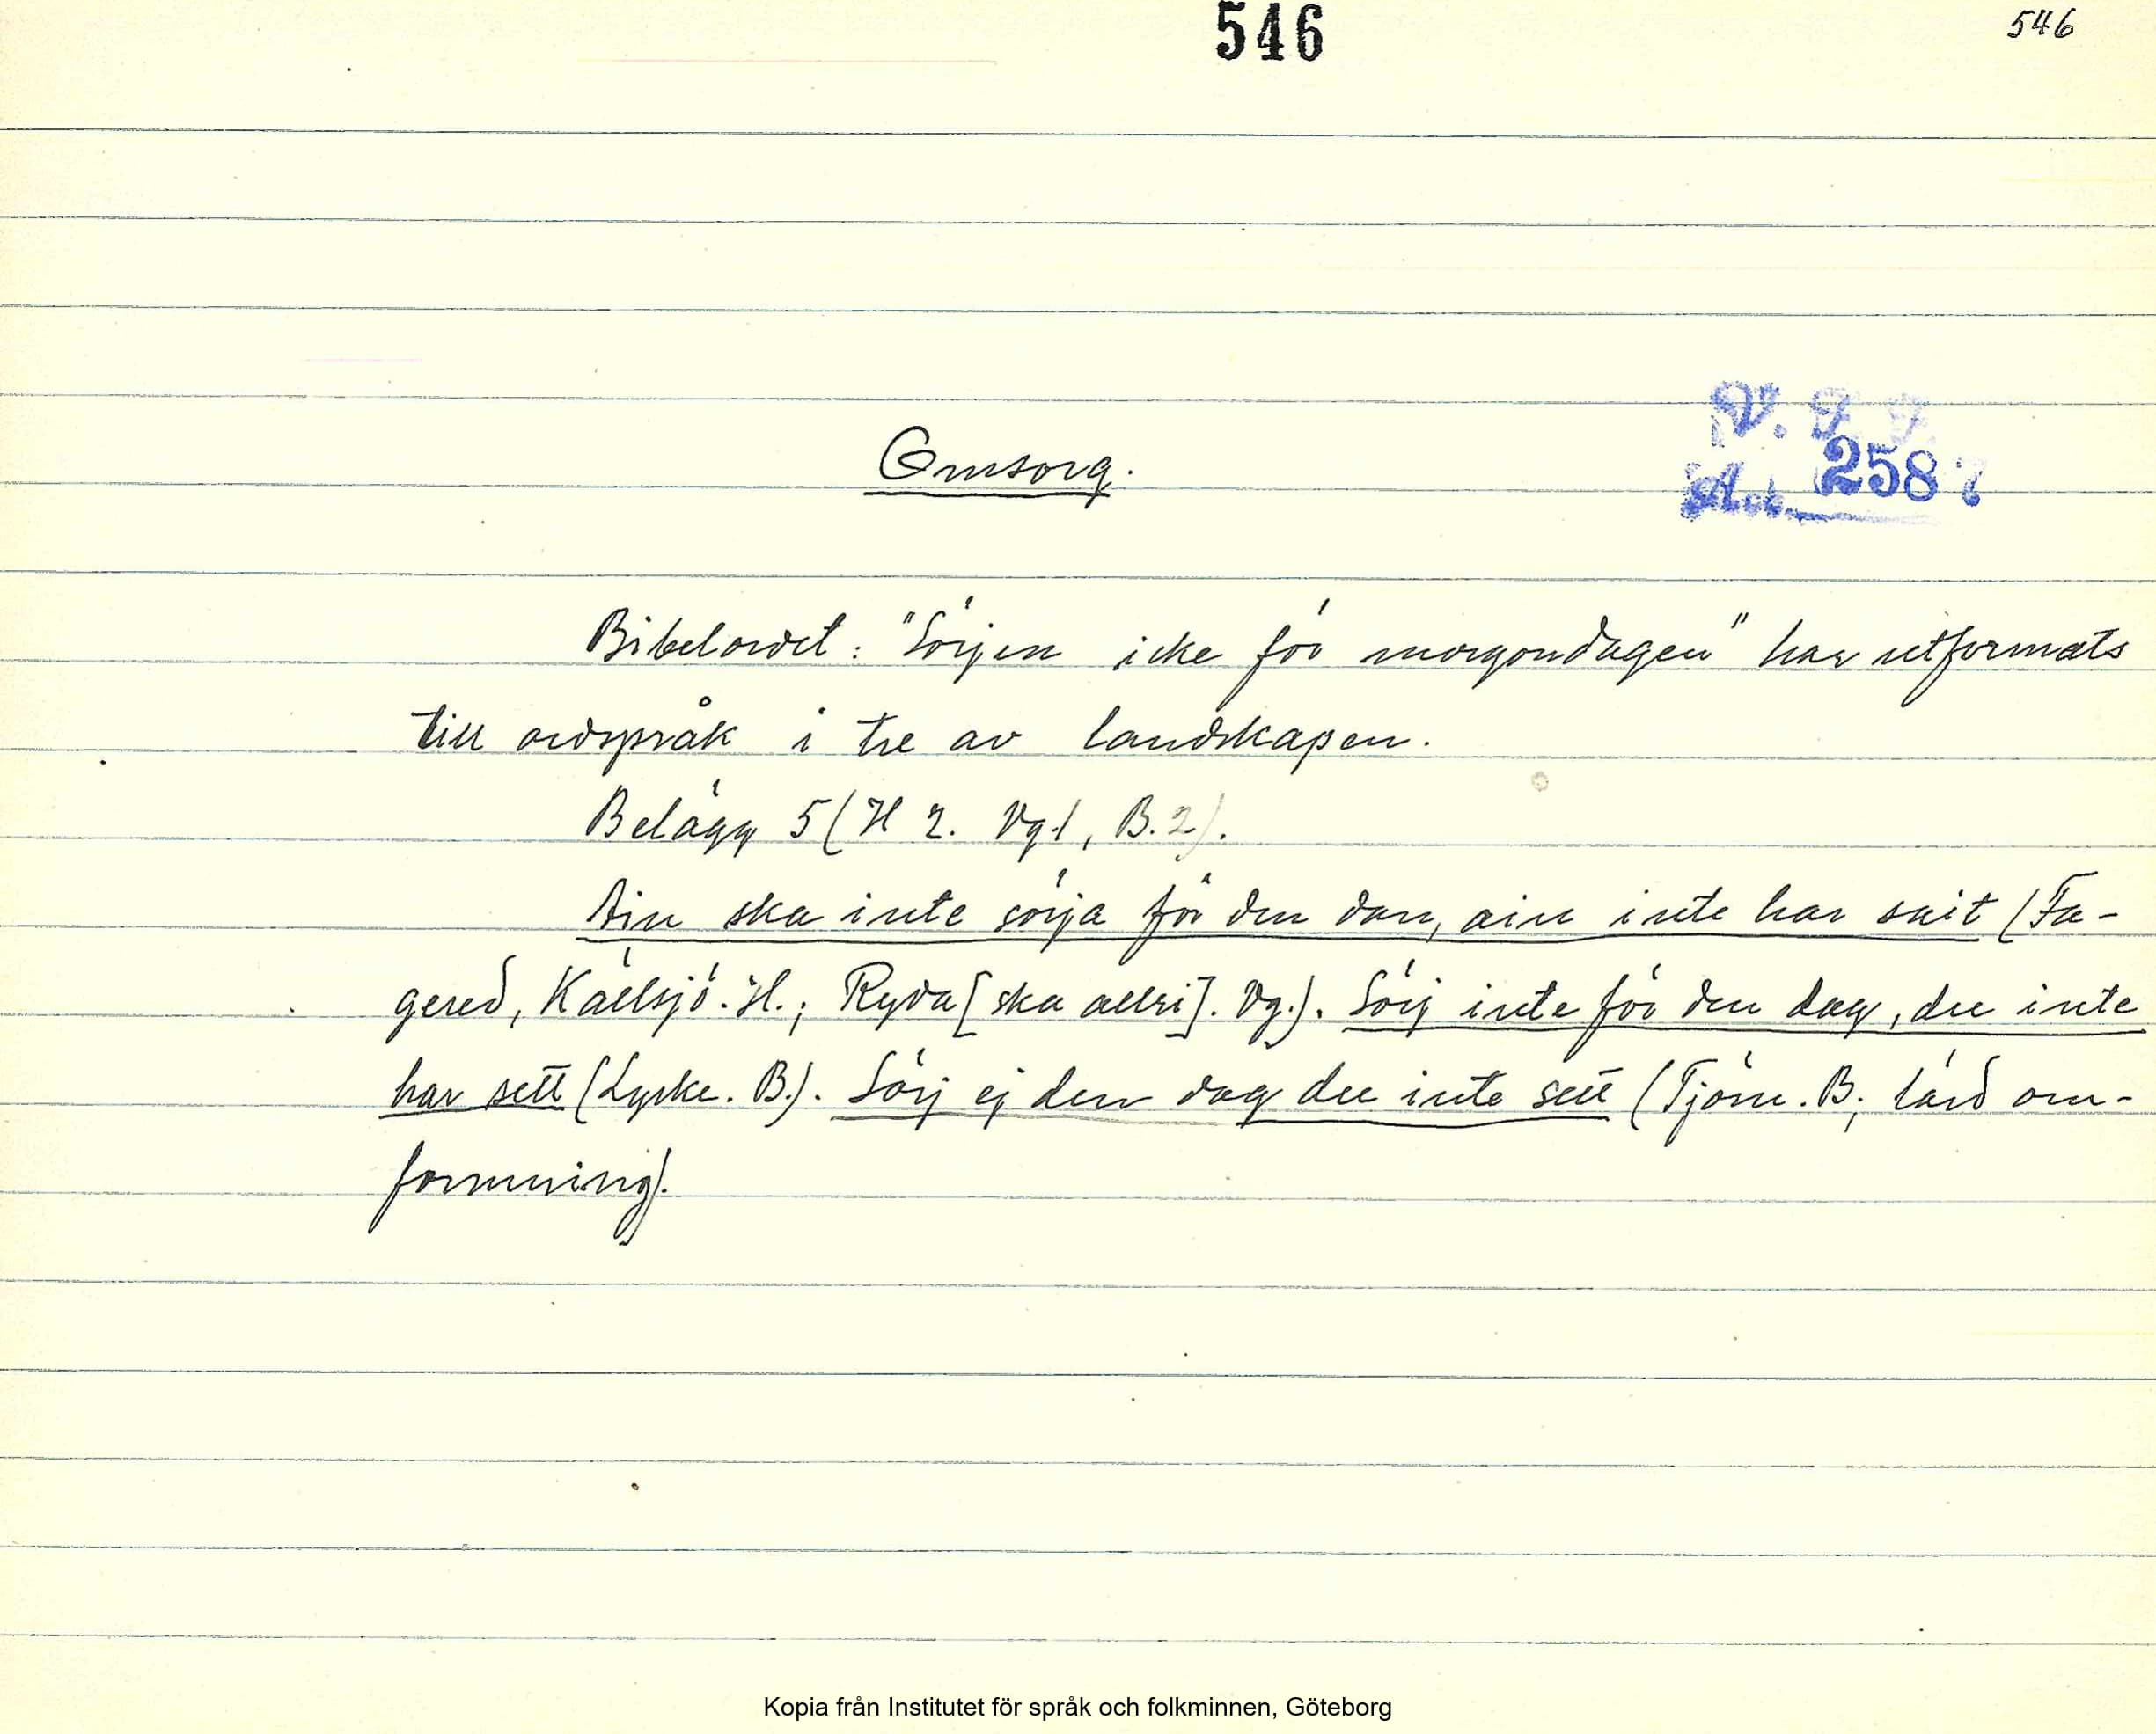 546
546
V. F. F.
Omsorg.
Acc. 2587
Bibelordet: "Sörjen icke för morgondagen" har utformats
till ordspråk i tre av landskapen.
Belägg 5 (H 2. Vg. 1, B. 2).
Ain ska inte sörja för den dan, ain inte har sait (Fa-
gered, Källsjö. H.; Ryda [ska allri]. Vg.). Sörj inte för den dag, du inte
har sett (Lyske. B.). Sörj ej den dag du inte sett (Tjörn. B; lärd om-
formning).
Kopia från Institutet för språk och folkminnen, Göteborg